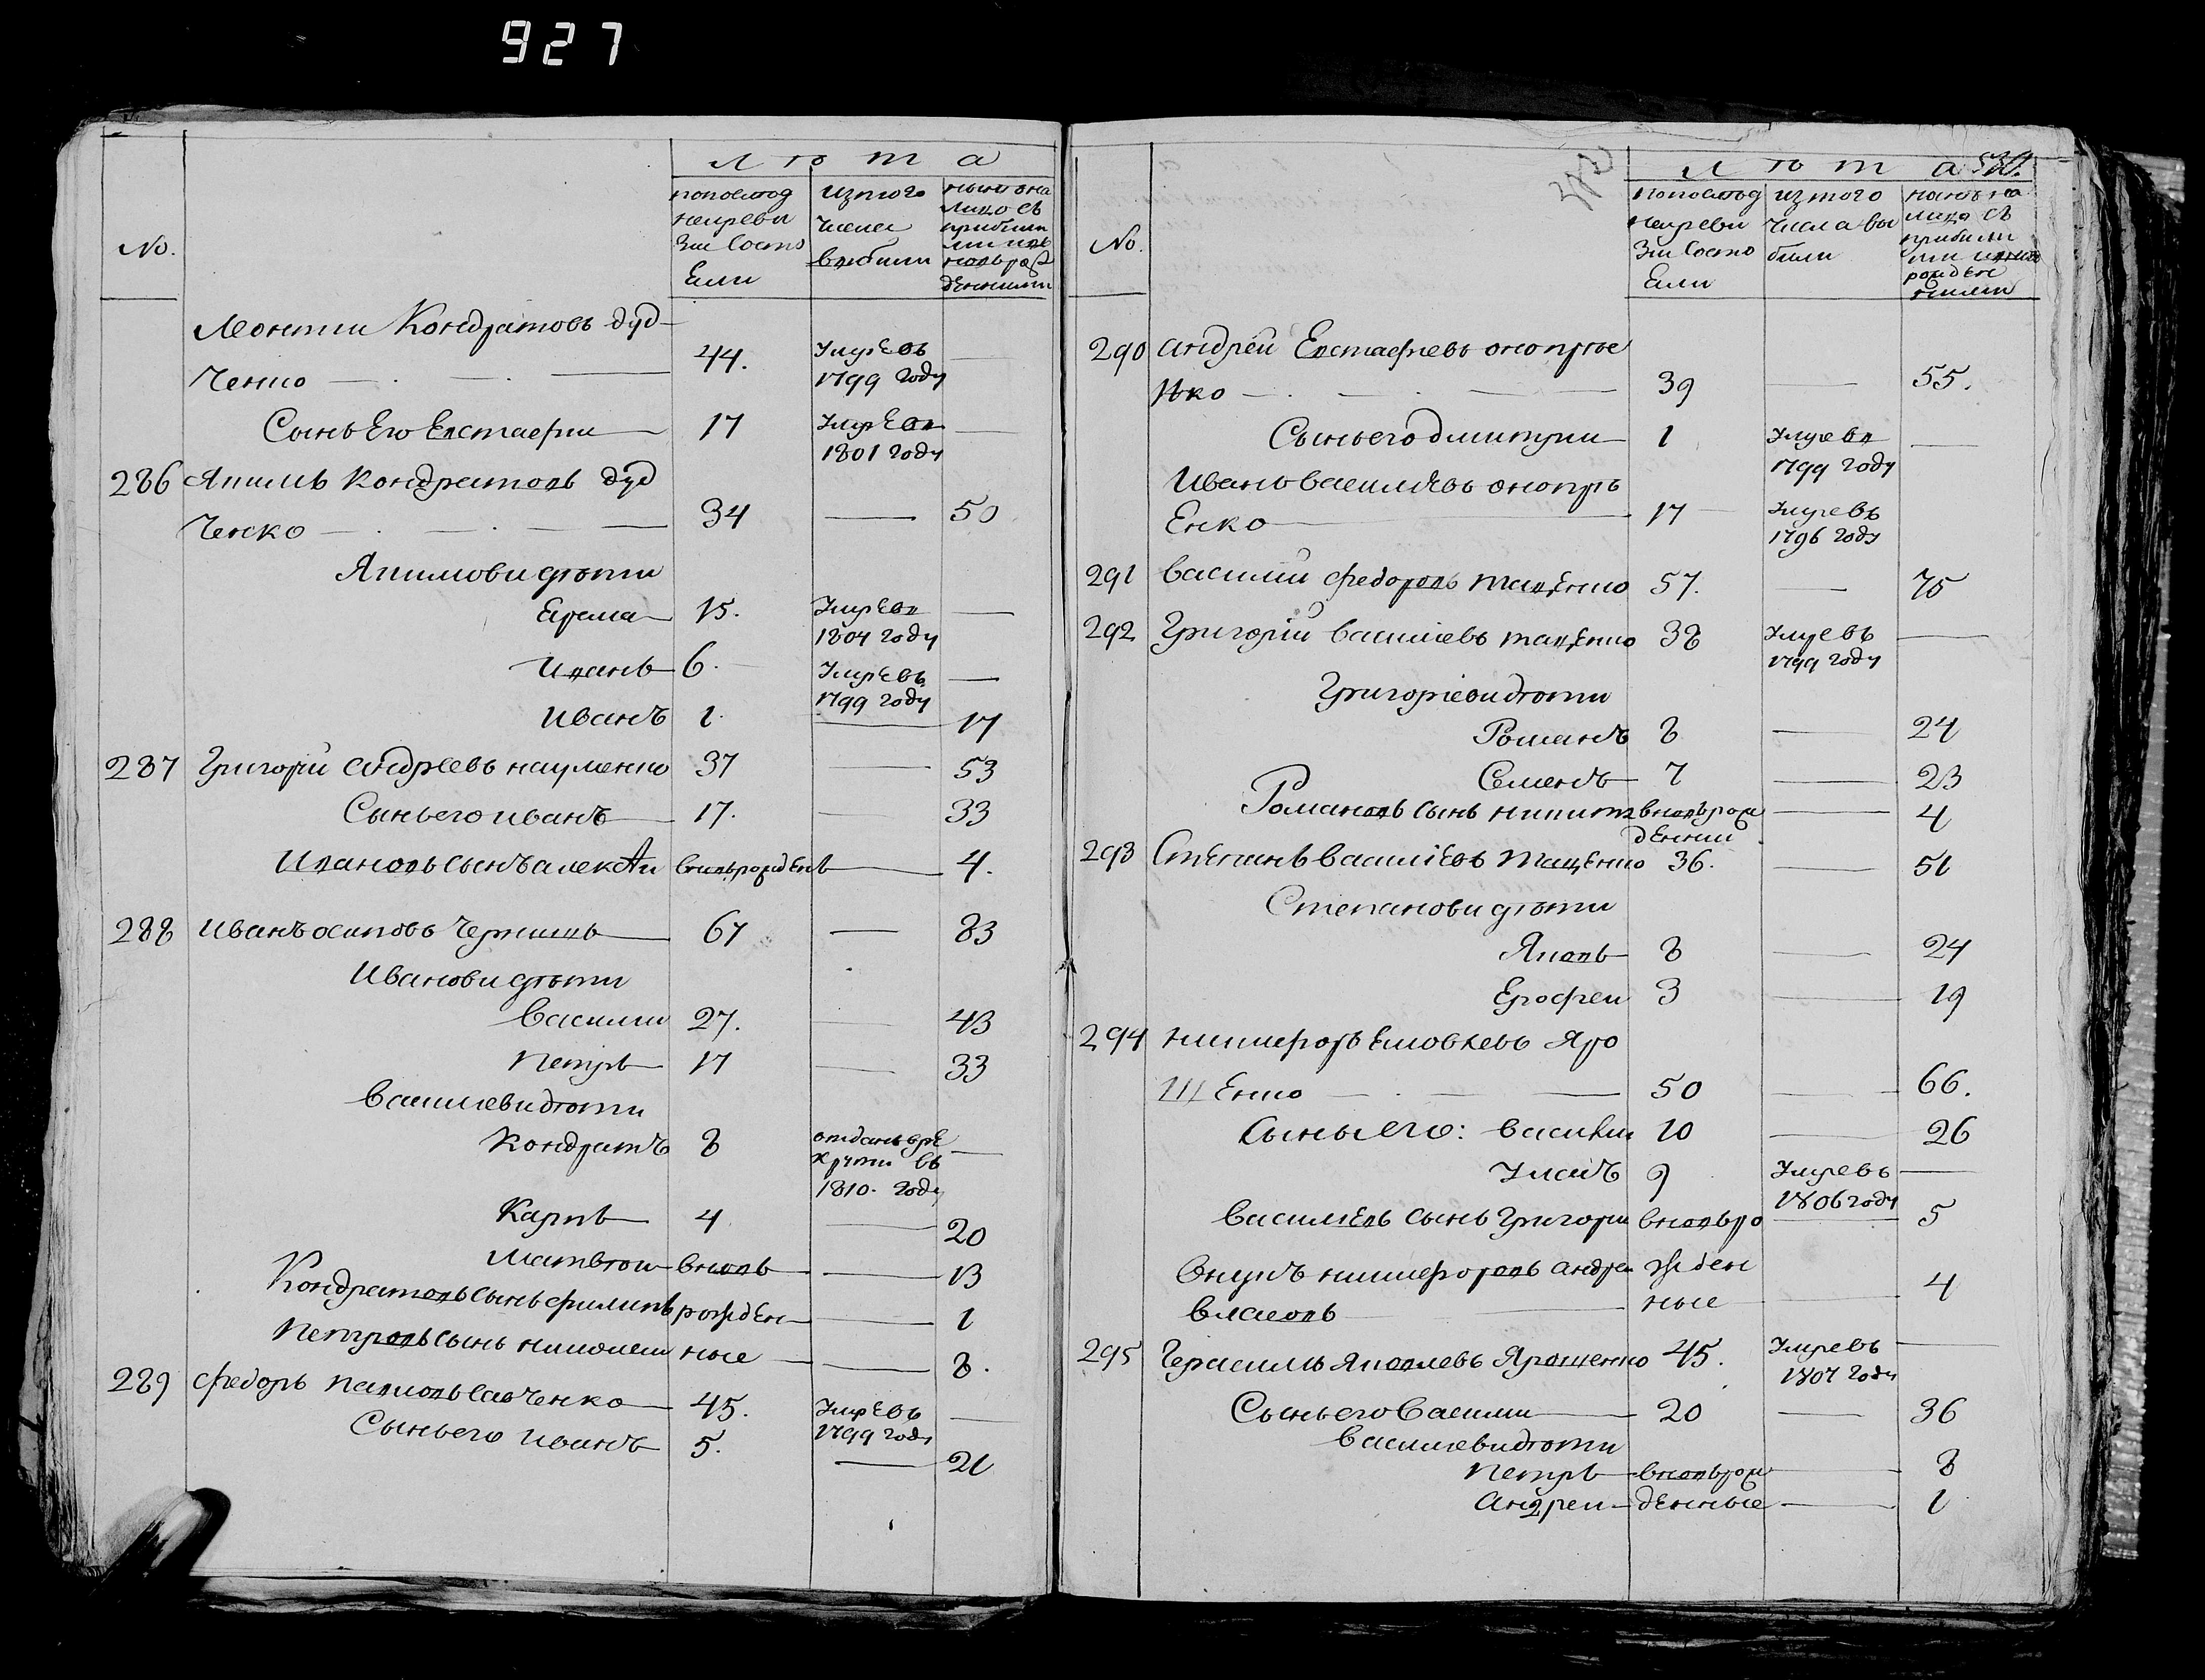 927
Л ѣ т а
No.
попослѣд
ней реви
зіи Состо
Еяли
изтого
числа
выбыли
нынѣ на
лицо съ
прибылы
ми и но
ворож
денными
Леонтии Кондратовъ дуд
Ченко 44. Умре въ —
1799 году
Сынъ Его Евстафии 17 Умре въ —
1801 году
286 Якимъ Кондратовъ дуд
Ченко 34 — 50
Якимови дѣти
Ерема 15. Умре въ —
1804 году
Иванъ 6. Умре въ —
1799 году
Иванъ 1. — 17
287 Григорий андреевъ науменко 37 — 53
Сынъ его иванъ 17. — 33
Ивановъ сынъ алексѣи вновьрожденъ — 4.
288 Иванъ осиповъ Чернышъ 67 — 83
Иванови дѣти
Василии 27. — 43
Петръ 17 — 33
Василеви дѣти
Кондратъ 8 отданъ врѣ —
круты въ
1810. году
Карпъ 4 — 20
Матвѣи вновь — 13
Кондратовъ сынъ филипъ рожден — 1
Петровъ сынъ никифоръ ные — 8.
289 Федоръ павловъ савченко 45. Умре въ —
1799 году
Сынъ его иванъ 5. — 21
530.
Л ѣ т а
No.
попослѣд
ней реви
зіи Состо
Еяли
изтого
числа вы
были
нынѣ на
лицо съ
прибылы
ми и ново
рожден
ными
290 андрей Евстафиевъ оноприе
нко 39 — 55.
Сынъ его дмитрии 1 Умре въ —
1799 году
Иванъ васильевъ онопри
Енко 17 Умре въ
1796 году
291 василий федоровъ таценко 57. — 75
292 Григорій василиевъ таценко 38 Умре въ —
1799 году
Григоріеви дѣти
Романъ 8 — 24
Семенъ 7 — 23
Романовъ сынъ никита вновьрож — 4
денныи
293 Степанъ василіевъ таценко 36. — 51
Степанови дѣти
Яковъ 8 — 24
Ерофеи 3 — 19
294 никифоръ Яковлевъ Яро
ш Енко 50 — 66.
Сыны его: василии 10 — 26
Умре въ —
9 1806 году
василиевъ сынъ григории вновьро — 5
внукъ никифоровъ андреи жден
власовъ ные — 4
295 Герасимъ Яковлевъ Ярошенко 45. Умре въ —
1807 году
Сынъ его Василии 20 — 36
василиеви дѣти
Петръ вновьрож — 8
андреи денные — 1